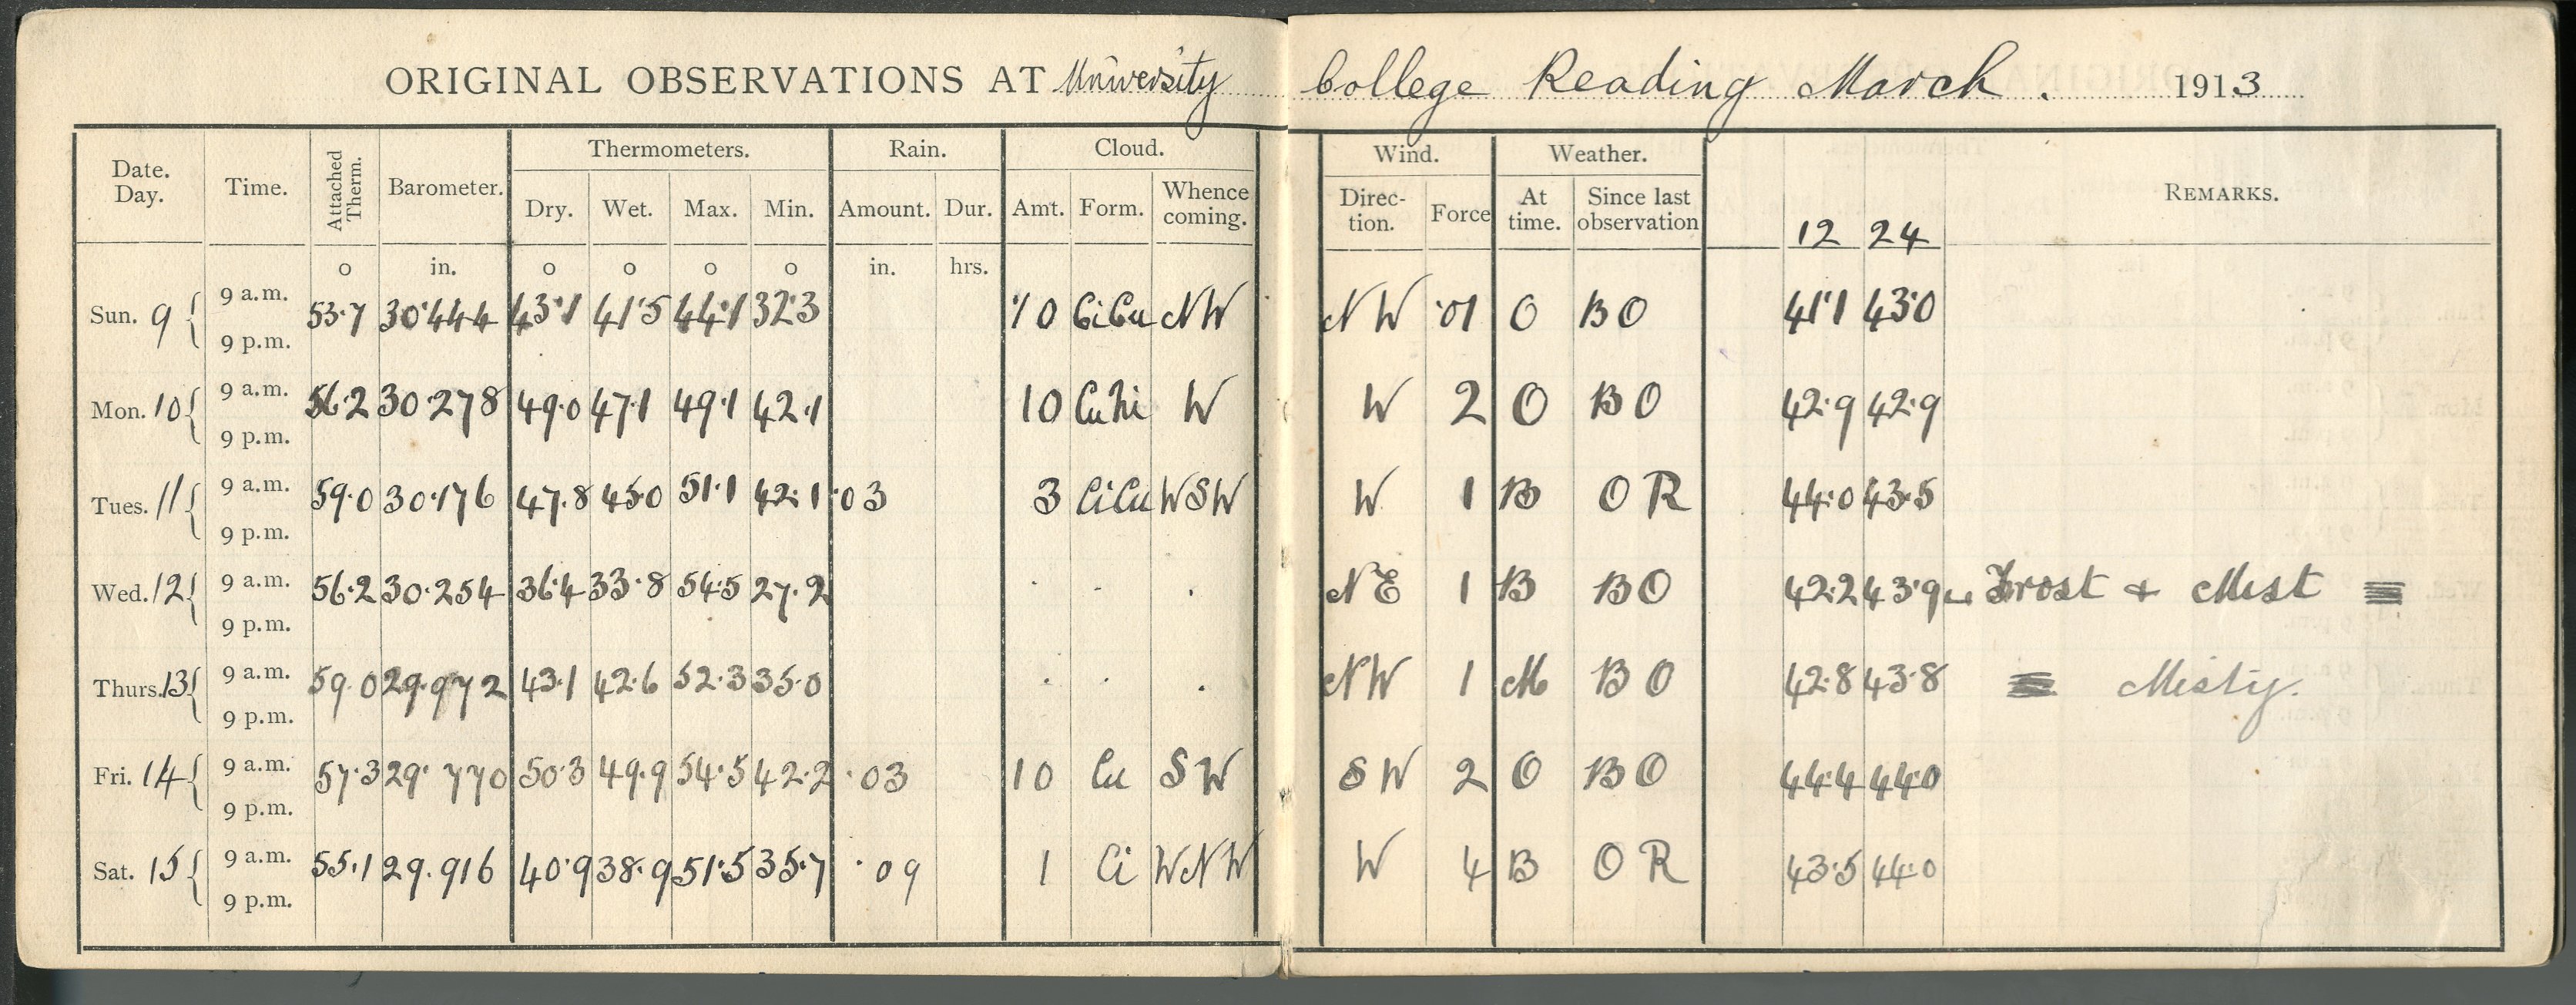 ORIGINAL OBSERVATIONS AT University College Reading March . 1913
Date. Day. Time. Attached Therm. Barometer. Thermometers. Rain. Cloud. Wind. Weather. REMARKS.
Dry. Wet. Max. Min. Amount. Dur. Amt. Form. Whence coming. Direc- tion. Force At time. Since last observation 12 24
o in. o o o o in. hrs.
Sun. 9 { 9 a.m. 53·7 30·444 43·1 41·5 44·1 32·3 10 CiCu NW NW ·01 O BO 41·1 43·0
9 p.m.
Mon. 10 { 9 a.m. 56·2 30·278 49·0 47·1 49·1 42·1 10 CuNi W W 2 O BO 42·9 42·9
9 p.m.
Tues. 11 { 9 a.m. 59·0 30·176 47·8 45·0 51·1 42·1 ·03 3 CiCu WSW W 1 B OR 44·0 43·5
9 p.m.
Wed. 12 { 9 a.m. 56·2 30·254 36·4 33·8 54·5 27·2 . . . NE 1 B BO 42·2 43·9 ⌴ Frost + Mist ≡
9 p.m.
Thurs. 13 { 9 a.m. 59·0 29·972 43·1 42·6 52·3 35·0 . . . NW 1 M BO 42·8 43·8 ≡ Misty.
9 p.m.
Fri. 14 { 9 a.m. 57·3 29·770 50·3 49·9 54·5 42·2 ·03 10 Cu SW SW 2 O BO 44·4 44·0
9 p.m.
Sat. 15 { 9 a.m. 55·1 29·916 40·9 38·9 51·5 35·7 ·09 1 Ci WNW W 4 B OR 43·5 44·0
9 p.m.